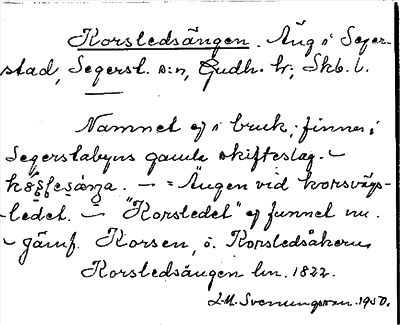 Korsledsängen. Äng i Seger-
stad, Segerst. s:n, Gudh. hr; Skb. l.
Namnet ej i bruk; finnes i
Segerstabyns gamla skifteslag. –
– = Ängen vid korsvägs-
-ledet. – "Korsledet" ej funnet nu.
– Jämf. Korsen, o. Korsledsåkern
Korsledsängen lm. 1822.
I.M. Svenungsson. 1950.